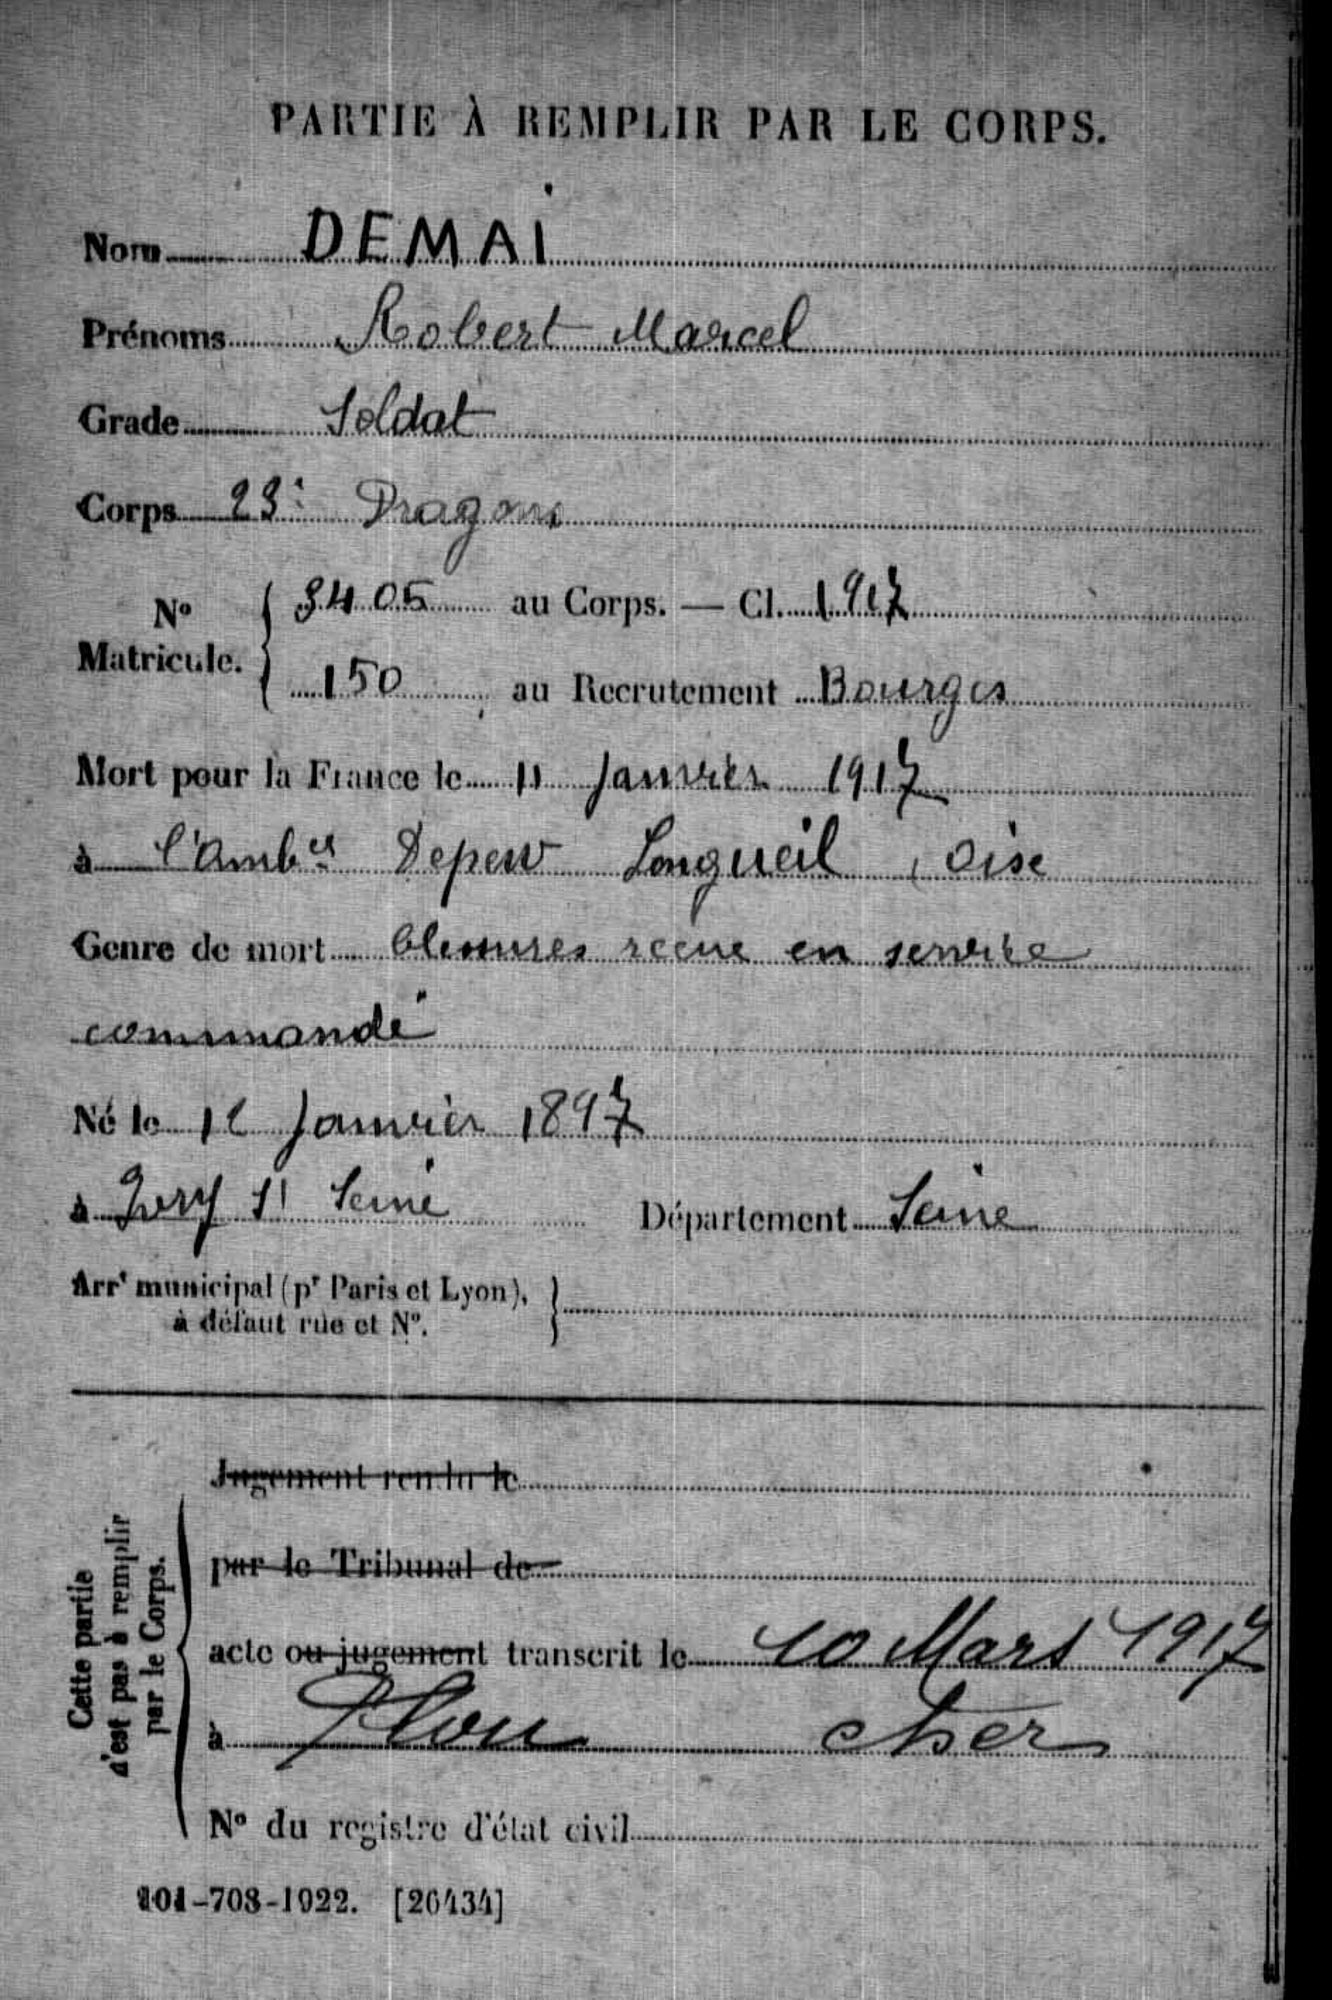 PARTIE À REMPLIR PAR LE CORPS.
Nom DEMAI
Prénoms Robert Marcel
Grade Soldat
Corps 23e Dragons
No Matricule. { 3405 au Corps. — Cl. 1917
150 au Recrutement Bourges
Mort pour la France le 11 Janvier 1917
à l'Ambce Depew Longueil, Oise
Genre de mort blessures recue en service
commandé
Né le 12 Janvier 1897
à Ivry St Seine Département Seine
Arrt municipal (pr Paris et Lyon), à défaut rue et No. }
Cette partie n'est pas à remplir par le Corps.
Jugement rendu le
par le Tribunal de
acte ou jugement transcrit le 10 Mars 1917
à Plou Cher
No du registre d'état civil
101-708-1922. [26434]